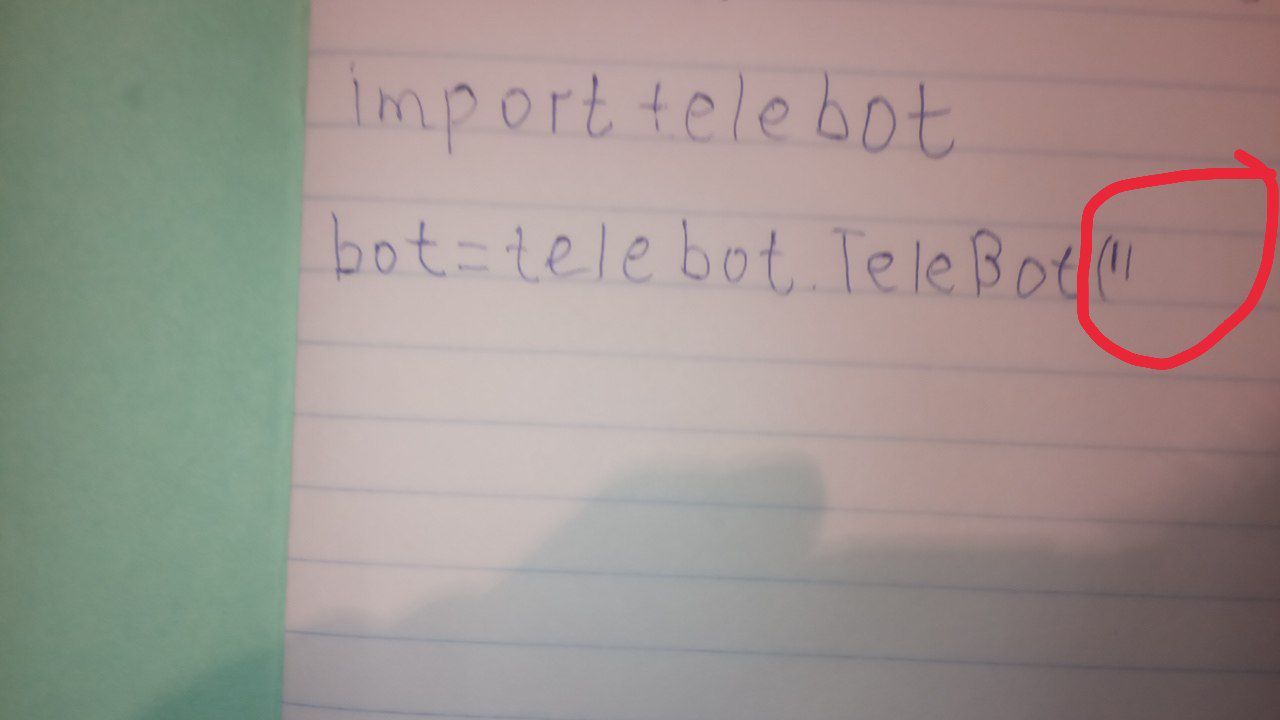 import telebot
bot=telebot.TeleBot("